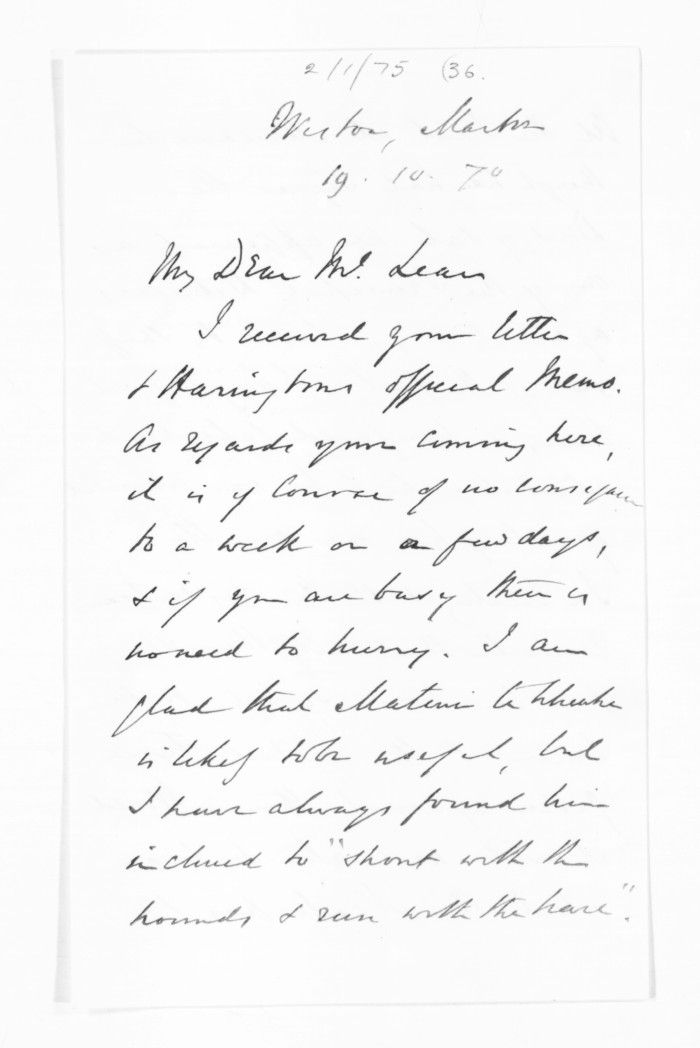 2/1/75 (36.
Weston, Marton
19. 10. 70
My Dear Mc. Lean
I received your letter
& Haringtons official Memo.
As regards your coming here,
it is of course of no consequence
to a week or a few days,
& if you are busy there is
no need to hurry. I am
glad that Matene te Whiwhi
is likely to be useful, but
I have always found him
inclined to "shout with the
hounds & run with the hare".